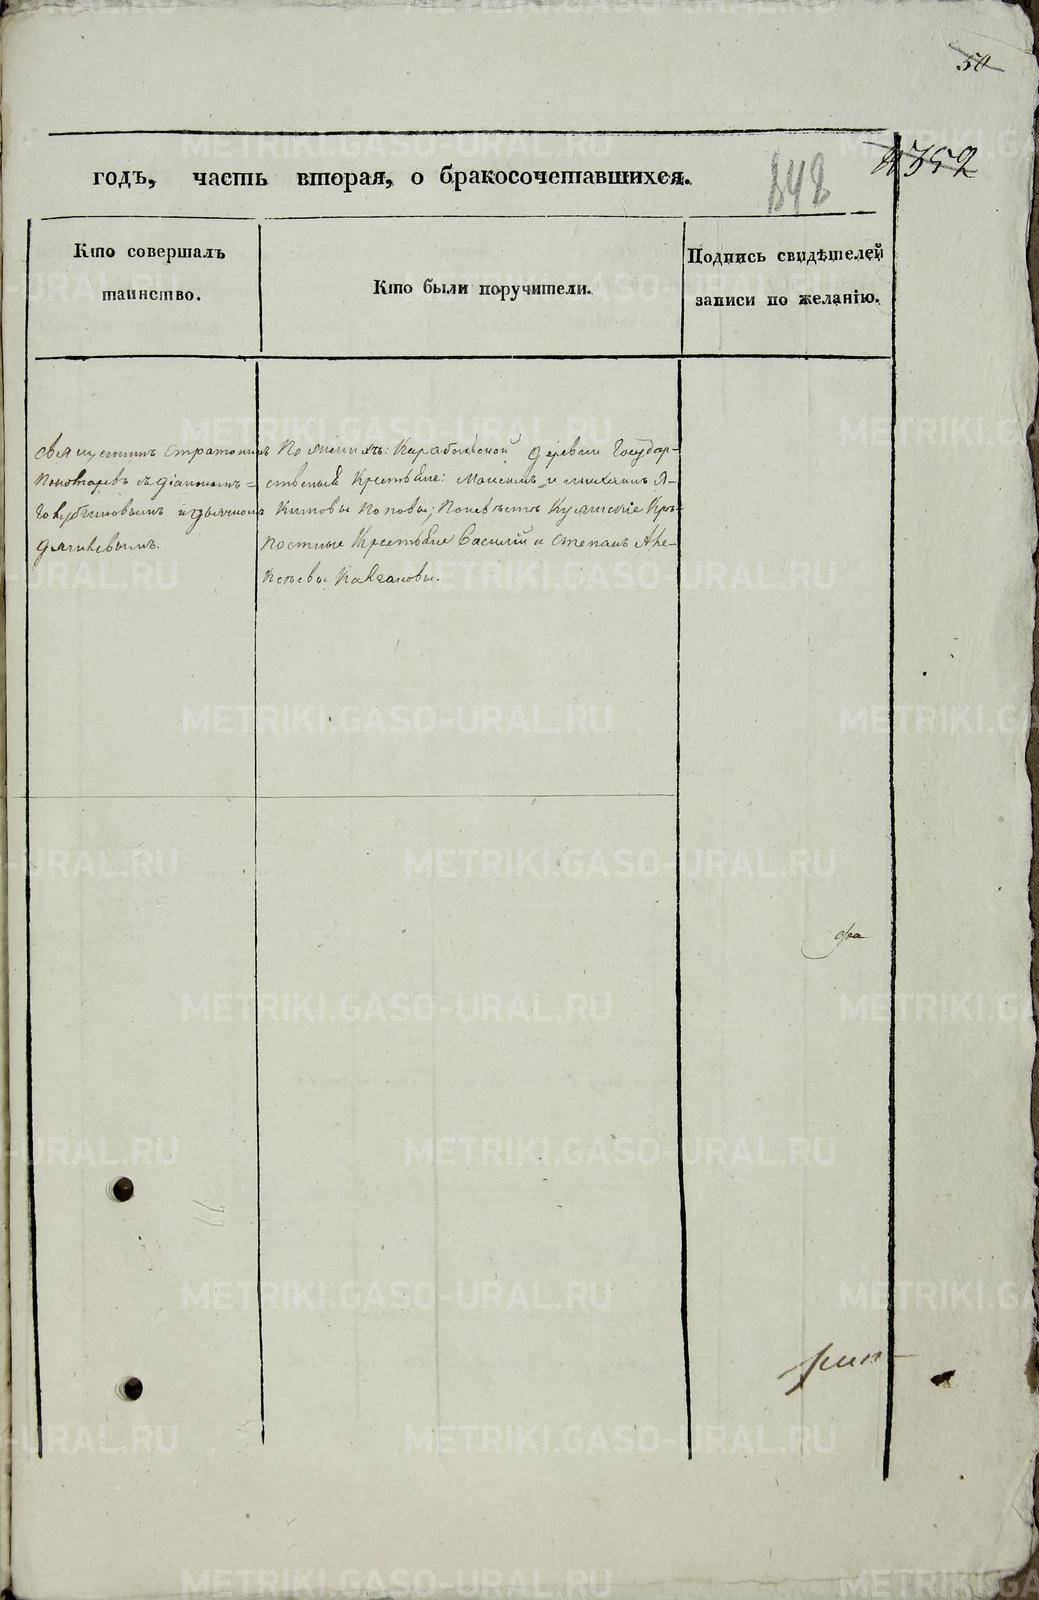 50
годъ, часть вторая, о бракосочетавшихся.
348
352
Кто совершалъ
таинство.
Кто были поручители.
Подпись свидѣтелей
записи по желанію.
Священникъ Стратоникъ
Пономаревъ съ діакономъ
Голубчиковымъ и дьячкомъ
Дягилевымъ.
По женихѣ: Карабольской деревни Государ-
ственные Крестьяне: Максимъ и Михаилъ Я-
кимовы Поповы; По невѣстѣ Куяшскіе Крѣ-
постные Крестьяне Василій и Степанъ Але-
ксѣевы Колгановы.
два
METRIKI.GASO-URAL.RU